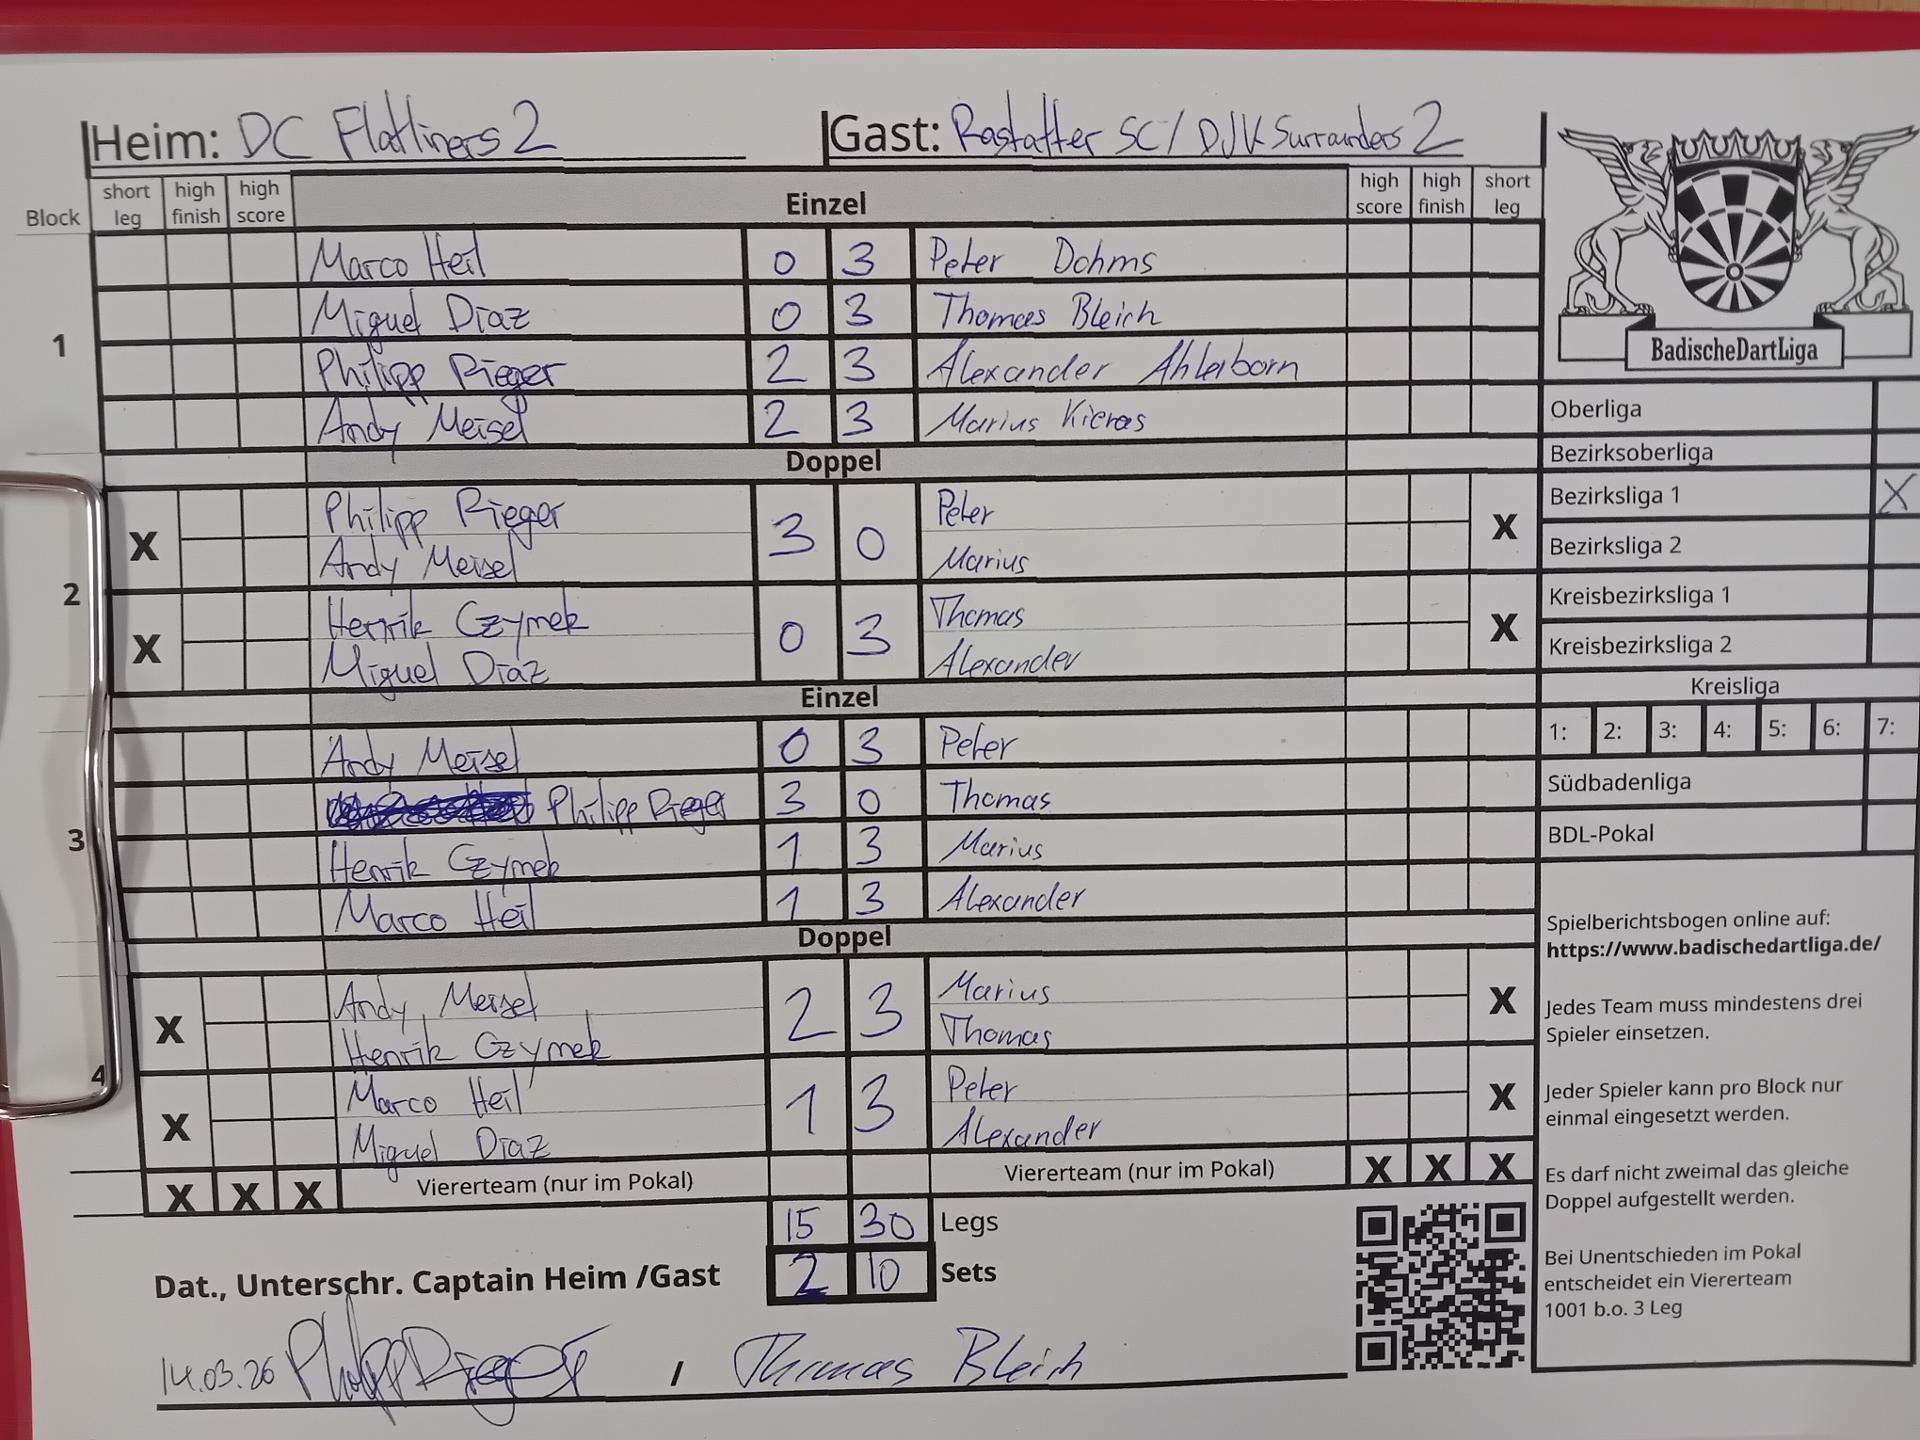 Heim: DC Flatliners 2 Gast: Rastatter SC / DJK Surranders 2
Block short leg high finish high score Einzel high score high finish short leg
1
Marco Heil 0 3 Peter Dohms
Miguel Diaz 0 3 Thomas Bleich
Philipp Rieger 2 3 Alexander Ahlerborn
Andy Meisel 2 3 Marius Kieras
Doppel
2
X Philipp Rieger 3 0 Peter X
Andy Meisel Marius
X Henrik Czymek 0 3 Thomas X
Miguel Diaz Alexander
Einzel
3
Andy Meisel 0 3 Peter
Philipp Rieger 3 0 Thomas
Henrik Czymek 1 3 Marius
Marco Heil 1 3 Alexander
Doppel
4
X Andy Meisel 2 3 Marius X
Henrik Czymek Thomas
X Marco Heil 1 3 Peter X
Miguel Diaz Alexander
X X X Viererteam (nur im Pokal) Viererteam (nur im Pokal) X X X
15 30 Legs
Dat., Unterschr. Captain Heim /Gast 2 10 Sets
14.03.26 Philipp Rieger / Thomas Bleich
BadischeDartLiga
Oberliga
Bezirksoberliga
Bezirksliga 1 X
Bezirksliga 2
Kreisbezirksliga 1
Kreisbezirksliga 2
Kreisliga
1: 2: 3: 4: 5: 6: 7:
Südbadenliga
BDL-Pokal
Spielberichtsbogen online auf:
https://www.badischedartliga.de/
Jedes Team muss mindestens drei
Spieler einsetzen.
Jeder Spieler kann pro Block nur
einmal eingesetzt werden.
Es darf nicht zweimal das gleiche
Doppel aufgestellt werden.
Bei Unentschieden im Pokal
entscheidet ein Viererteam
1001 b.o. 3 Leg